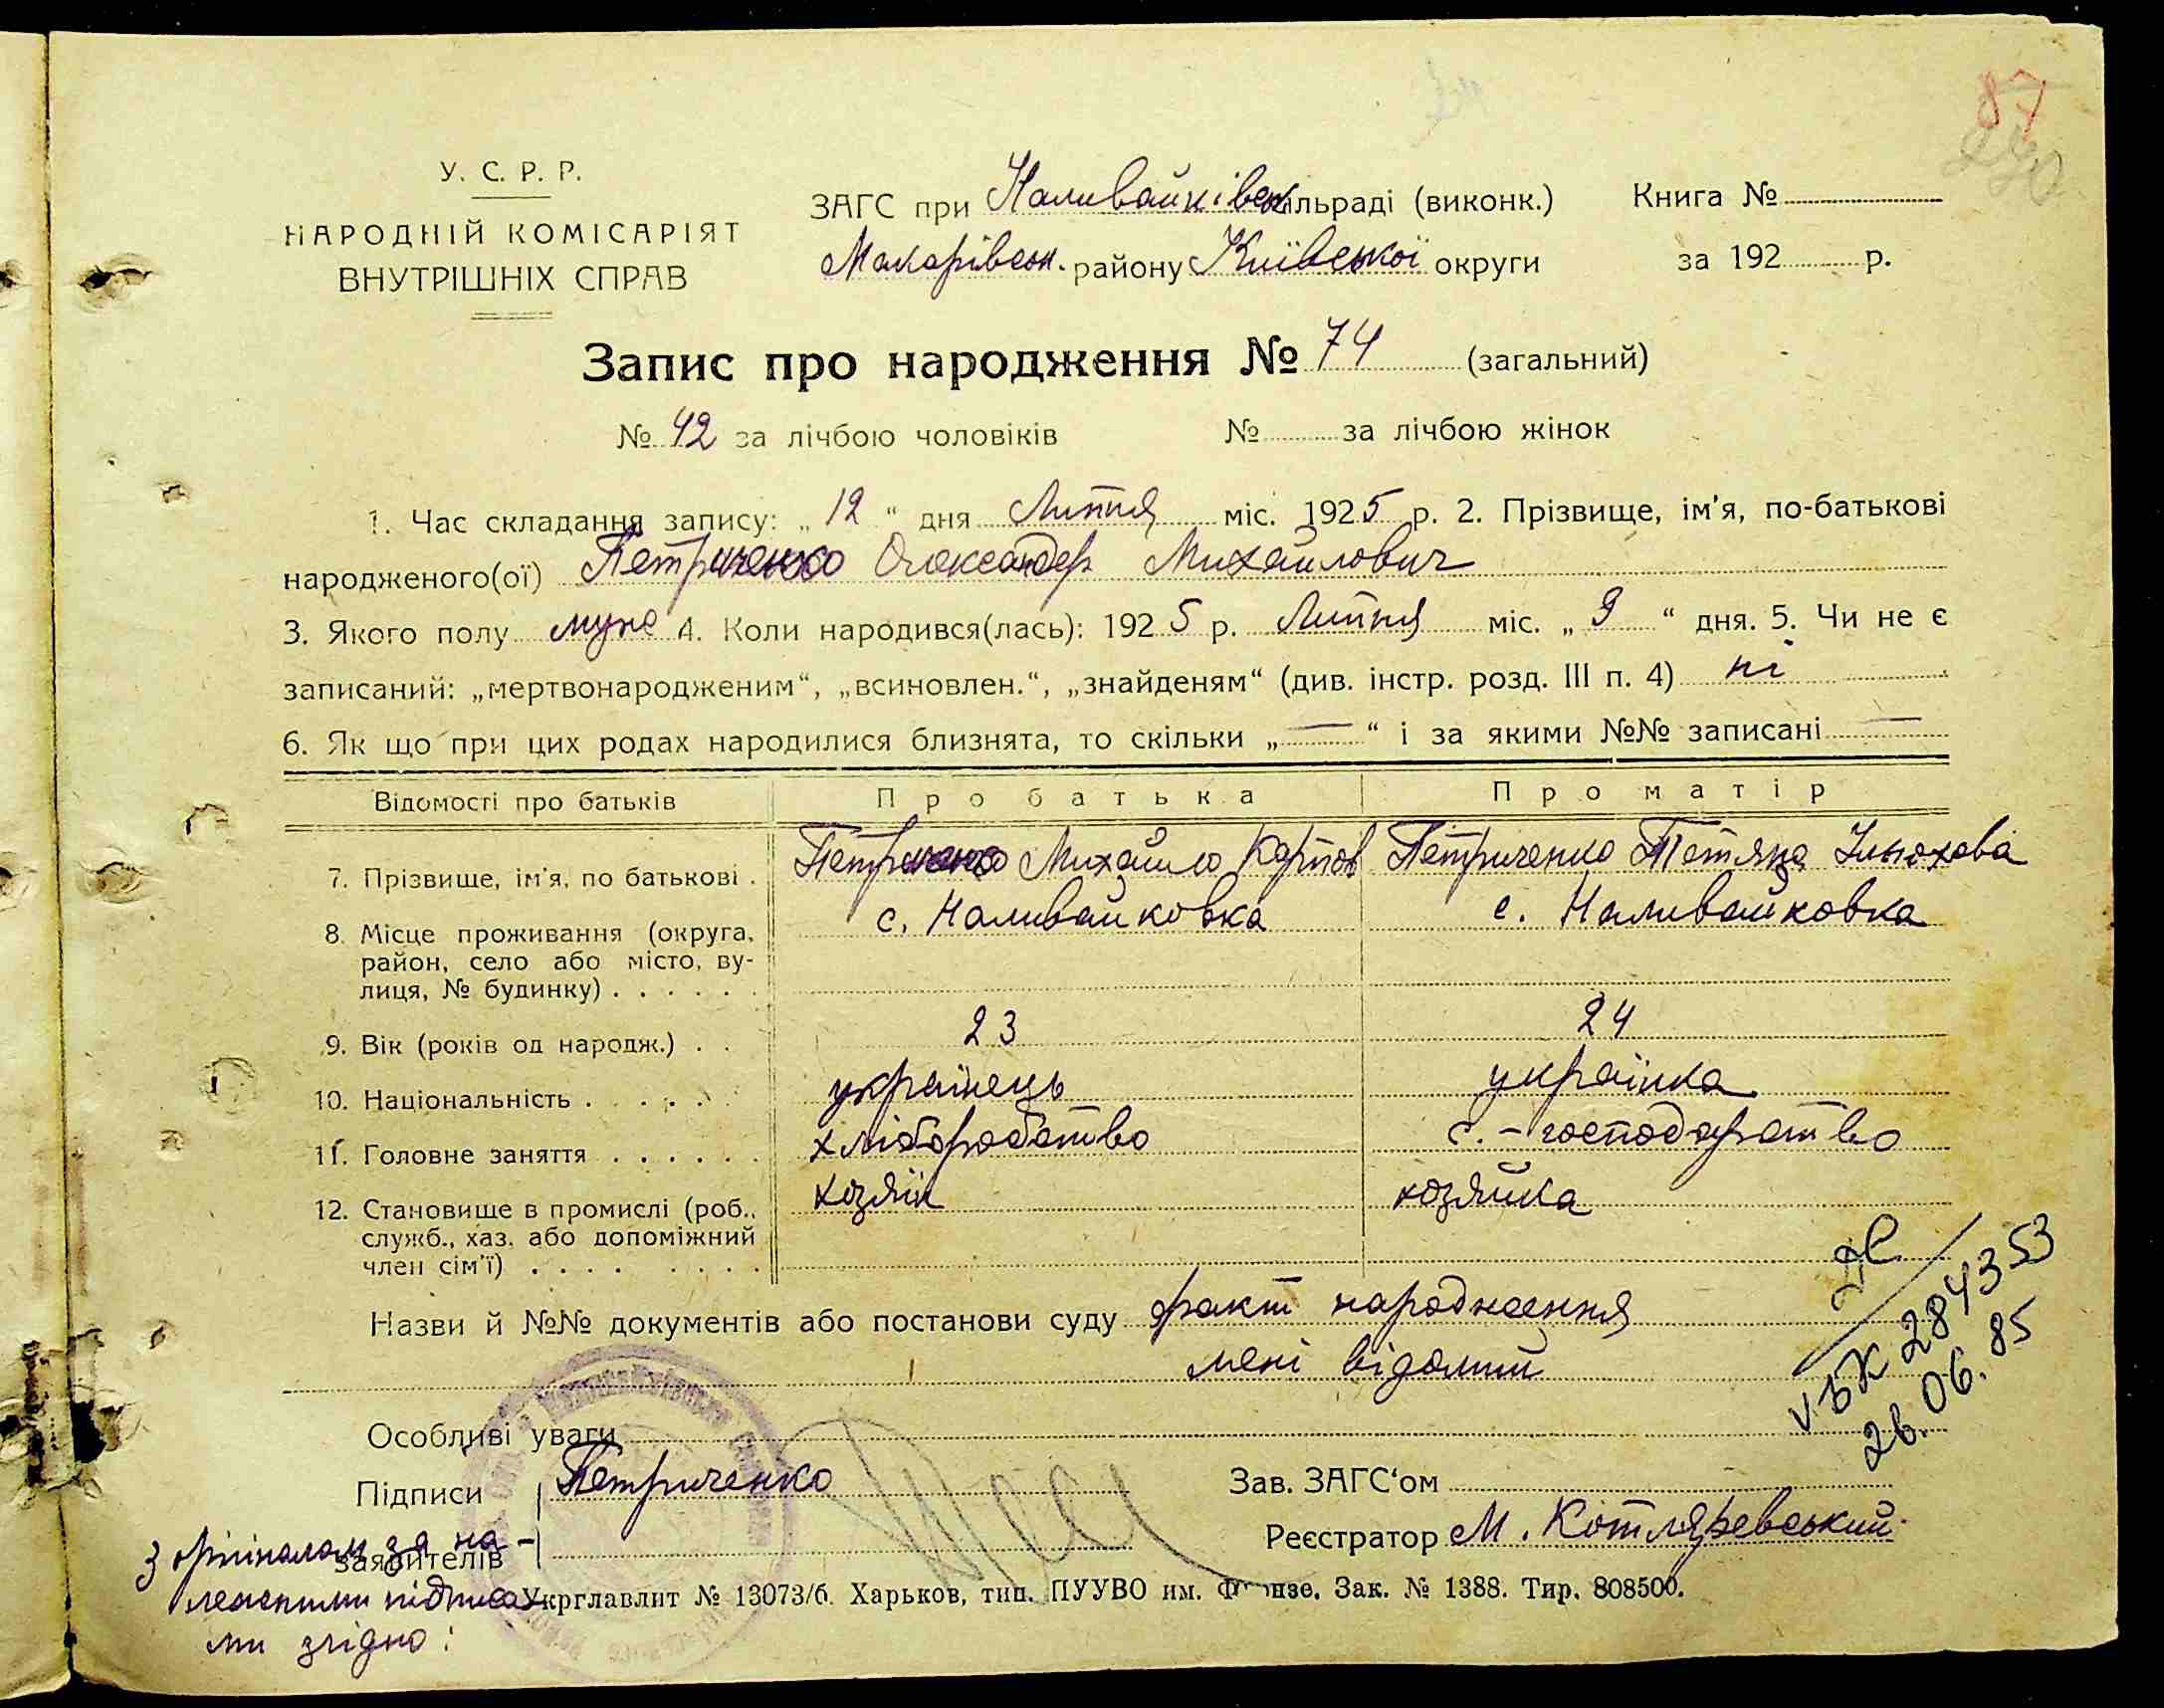 87
У. С. Р. Р.
НАРОДНІЙ КОМІСАРІЯТ
ВНУТРІШНІХ СПРАВ
ЗАГС при Наливайківськ сільраді (виконк.) Книга №
Макарівськ. району Київської округи за 192 р.
Запис про народження № 74 (загальний)
№ 42 за лічбою чоловіків № за лічбою жінок
1. Час складання запису: „ 12 “ дня Липня міс. 1925 р. 2. Прізвище, ім'я, по-батькові
народженого(ої) Петриченко Олександер Михайлович
3. Якого полу муже 4. Коли народився(лась): 192 5 р. Липня міс. „ 9 “ дня. 5. Чи не є
записаний: „мертвонародженим“, „всиновлен.“, „знайденям“ (див. інстр. розд. III п. 4) ні
6. Як що при цих родах народилися близнята, то скільки „ — “ і за якими №№ записані —
Відомості про батьків Про батька Про матір
7. Прізвище, ім'я, по батькові . Петриченко Михайло Карпов Петриченко Тетяна
8. Місце проживання (округа, с. Наливайковка с. Наливайковка
район, село або місто, ву-
лиця, № будинку) . . . . . .
9. Вік (років од народж.) . . 23 24
10. Національність . . . . . українець українка
11. Головне заняття . . . . . . хліборобство с.-господарство
12. Становище в промислі (роб., хозяїн хозяйка
служб., хаз. або допоміжний
член сім'ї) . . . . . . . . .
Назви й №№ документів або постанови суду факт народження
мені відомий
V БК 284353
26.06.85
Особливі уваги
Підписи Петриченко Зав. ЗАГС‘ом
заявителів Реєстратор М. Котляревський
З оріґіналом за на-
лежними підписа-
ми згідно:
Укрглавлит № 13073/б. Харьков, тип. ПУУВО им. Фрунзе. Зак. № 1388. Тир. 808500.